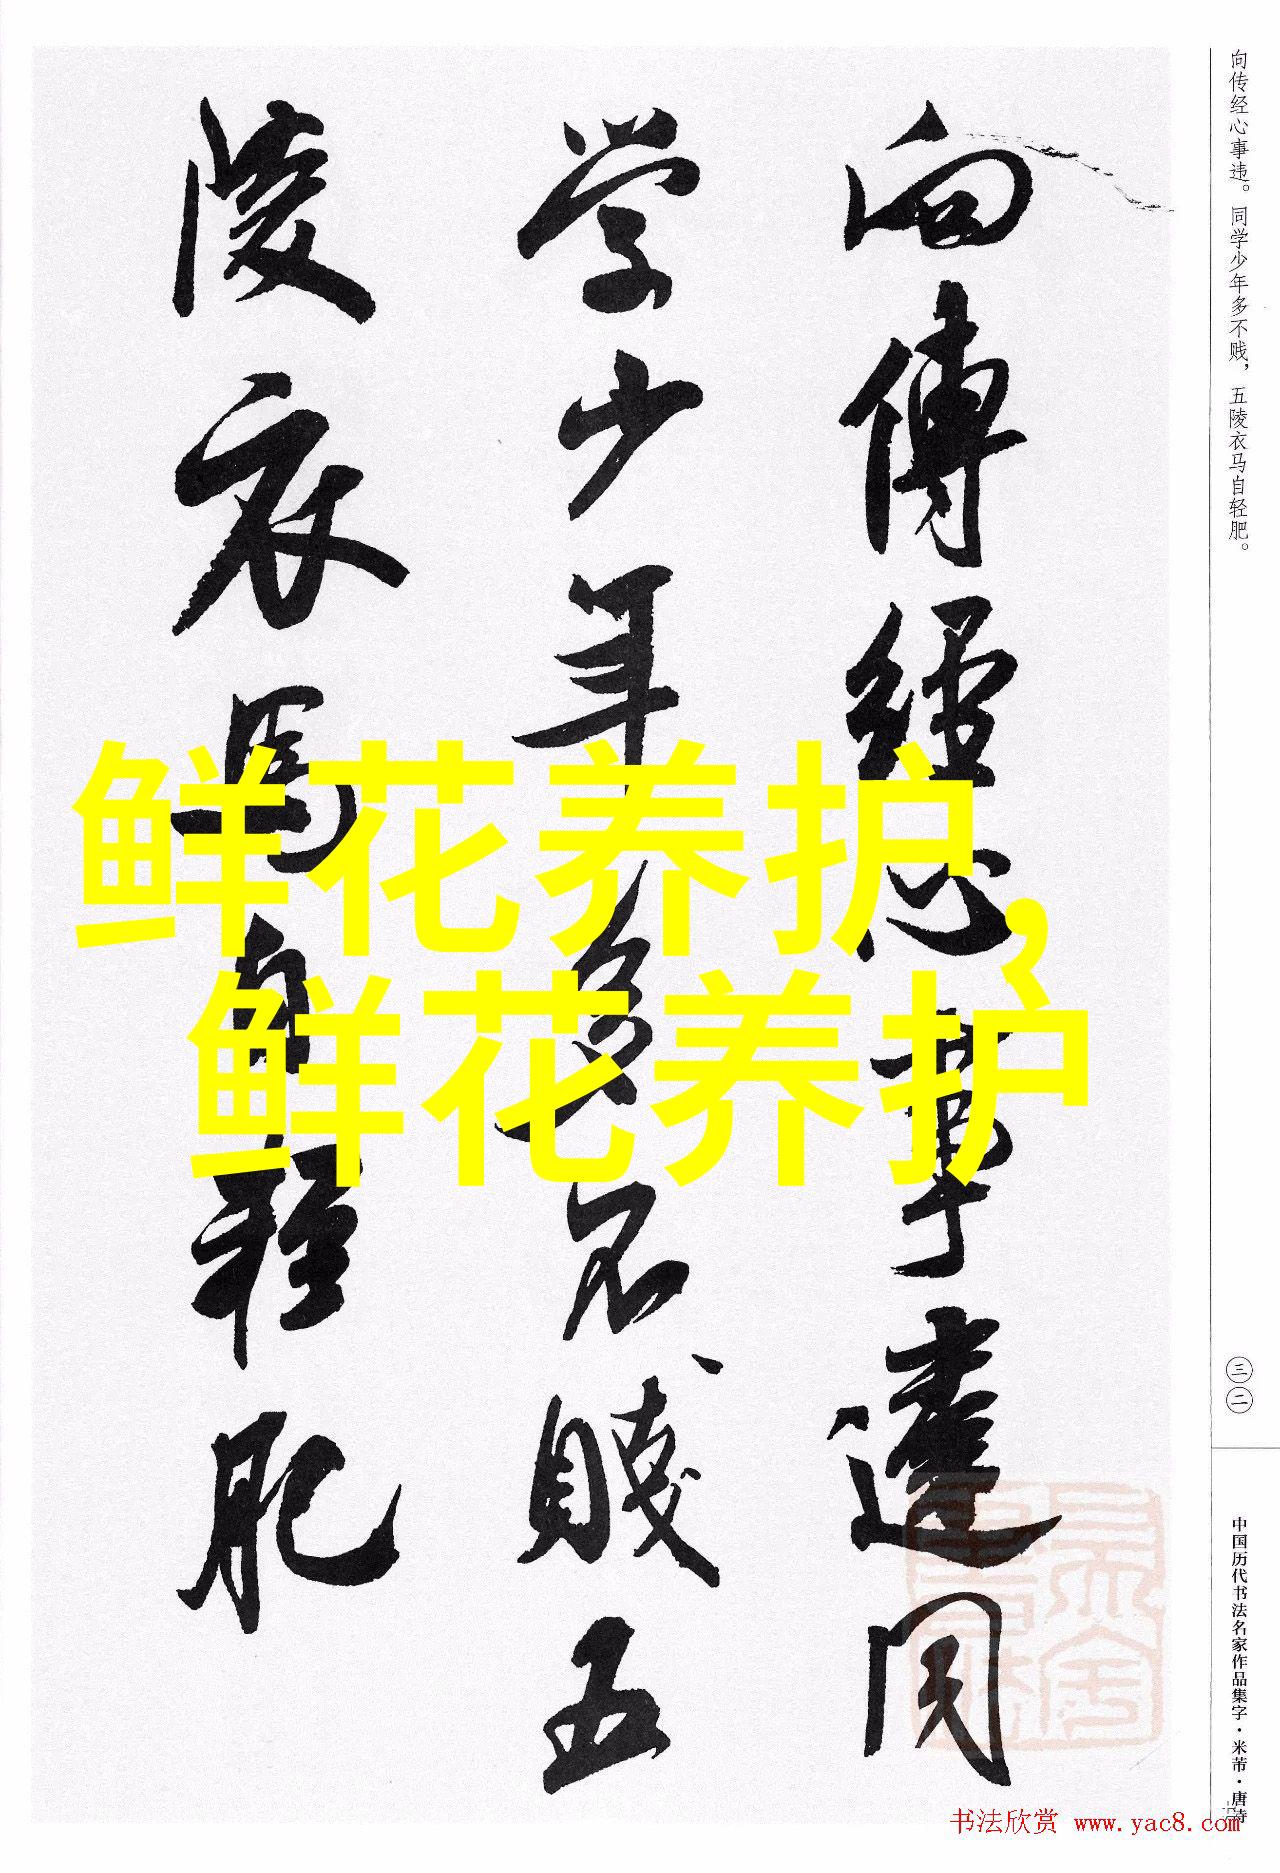 向傳經心事違同
学少年多不賤五
陵衣馬自輕肥
向传经心事违。同学少年多不贱，五陵衣马自轻肥。
三二
中国历代书法名家作品集字·米芾·唐诗
鲜花养护，
鲜花养护
书法欣赏 www.yac8.com